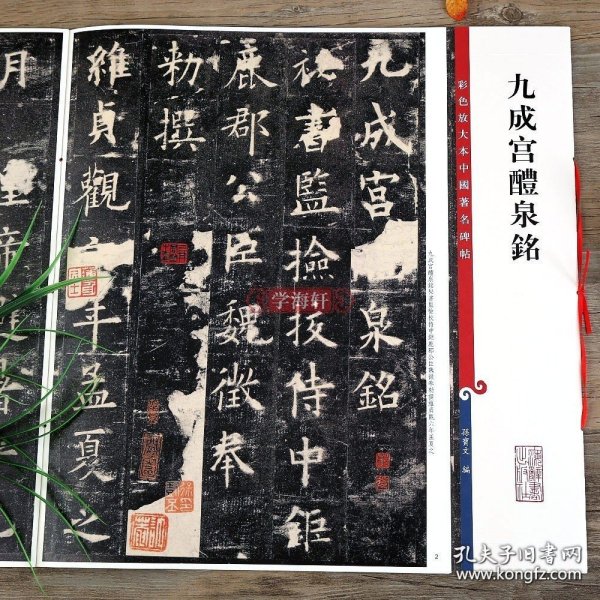 九成宮醴泉銘
彩色放大本中國著名碑帖
孫寶文 編
九成宮
泉銘
祕書監撿挍侍中鉅
鹿郡公臣魏徵奉
勅撰
維貞觀六年孟夏之
月
皇帝
學海轩
2
孔夫子旧书网
www.kongfz.com